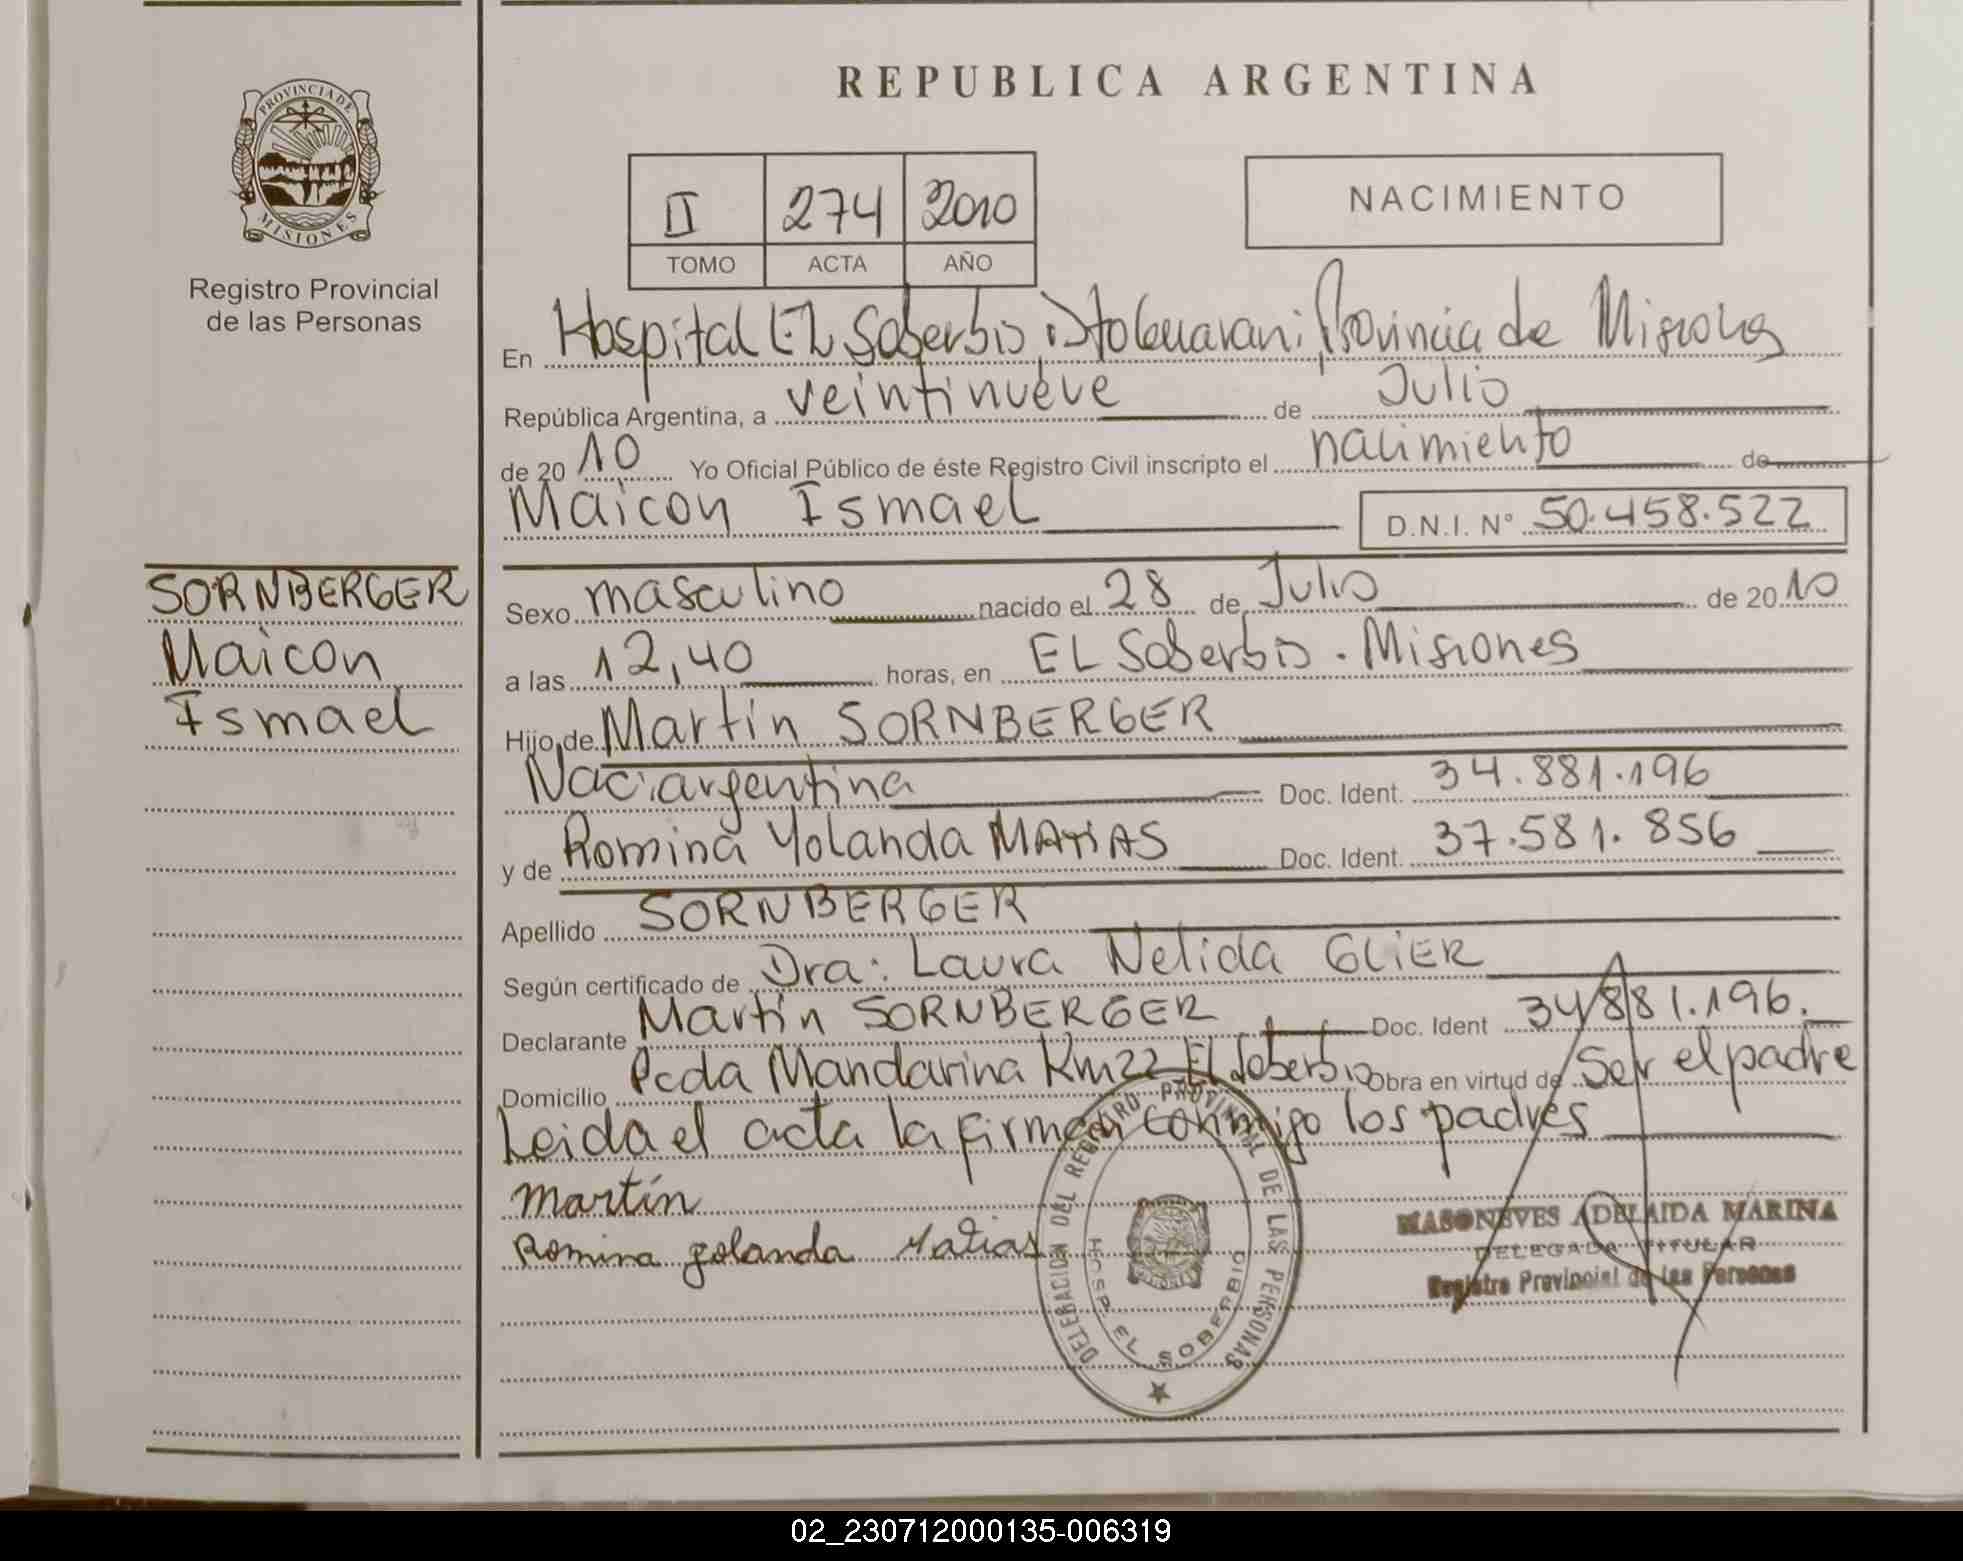 PROVINCIA DE
MISIONES
Registro Provincial
de las Personas
SORNBERGER
Maicon
Ismael
REPUBLICA ARGENTINA
II 274 2010
TOMO ACTA AÑO
NACIMIENTO
En Hospital EL Soberbio Dto Guarani Provincia de Misiones
República Argentina, a veintinueve de Julio
de 2010 Yo Oficial Público de éste Registro Civil inscripto el nacimiento de
Maicon Ismael D.N.I. N° 50.458.522
Sexo masculino nacido el 28 de Julio de 2010
a las 12,40 horas, en EL Soberbio . Misiones
Hijo de Martín SORNBERGER
Nac: argentina Doc. Ident. 34.881.196
y de Romina Yolanda MATIAS Doc. Ident. 37.581.856
Apellido SORNBERGER
Según certificado de Dra: Laura Nelida GLIER
Declarante Martín SORNBERGER Doc. Ident 34.881.196.
Domicilio Pcda Mandarina Km 22 El Soberbio Obra en virtud de Ser el padre
Leida el acta la firman conmigo los padres
Martín
Romina yolanda Matias
DELEGACION DEL REGISTRO PROVINCIAL DE LAS PERSONAS
HOSP. EL SOBERBIO
MASONEVES ADELAIDA MARINA
DELEGADA TITULAR
Registro Provincial de las Personas
02_230712000135-006319